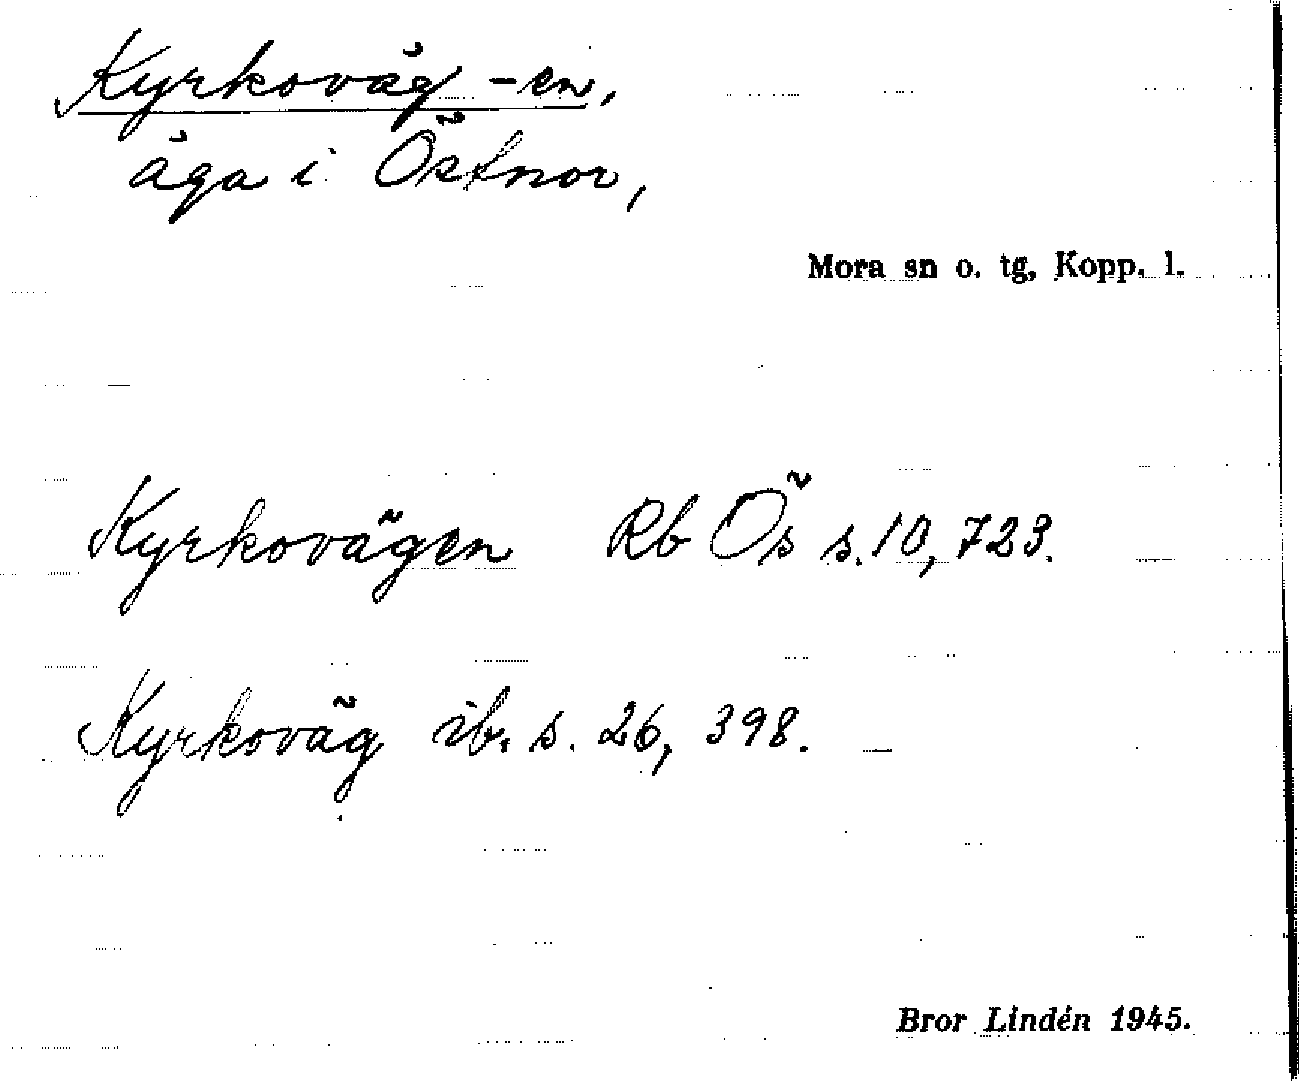 Kyrkoväg -en,
äga i Östnor,
Mora sn o. tg, Kopp. l.
Kyrkovägen Rb Ös s. 10, 723.
Kyrkoväg ib. s. 26, 398.
Bror Lindén 1945.